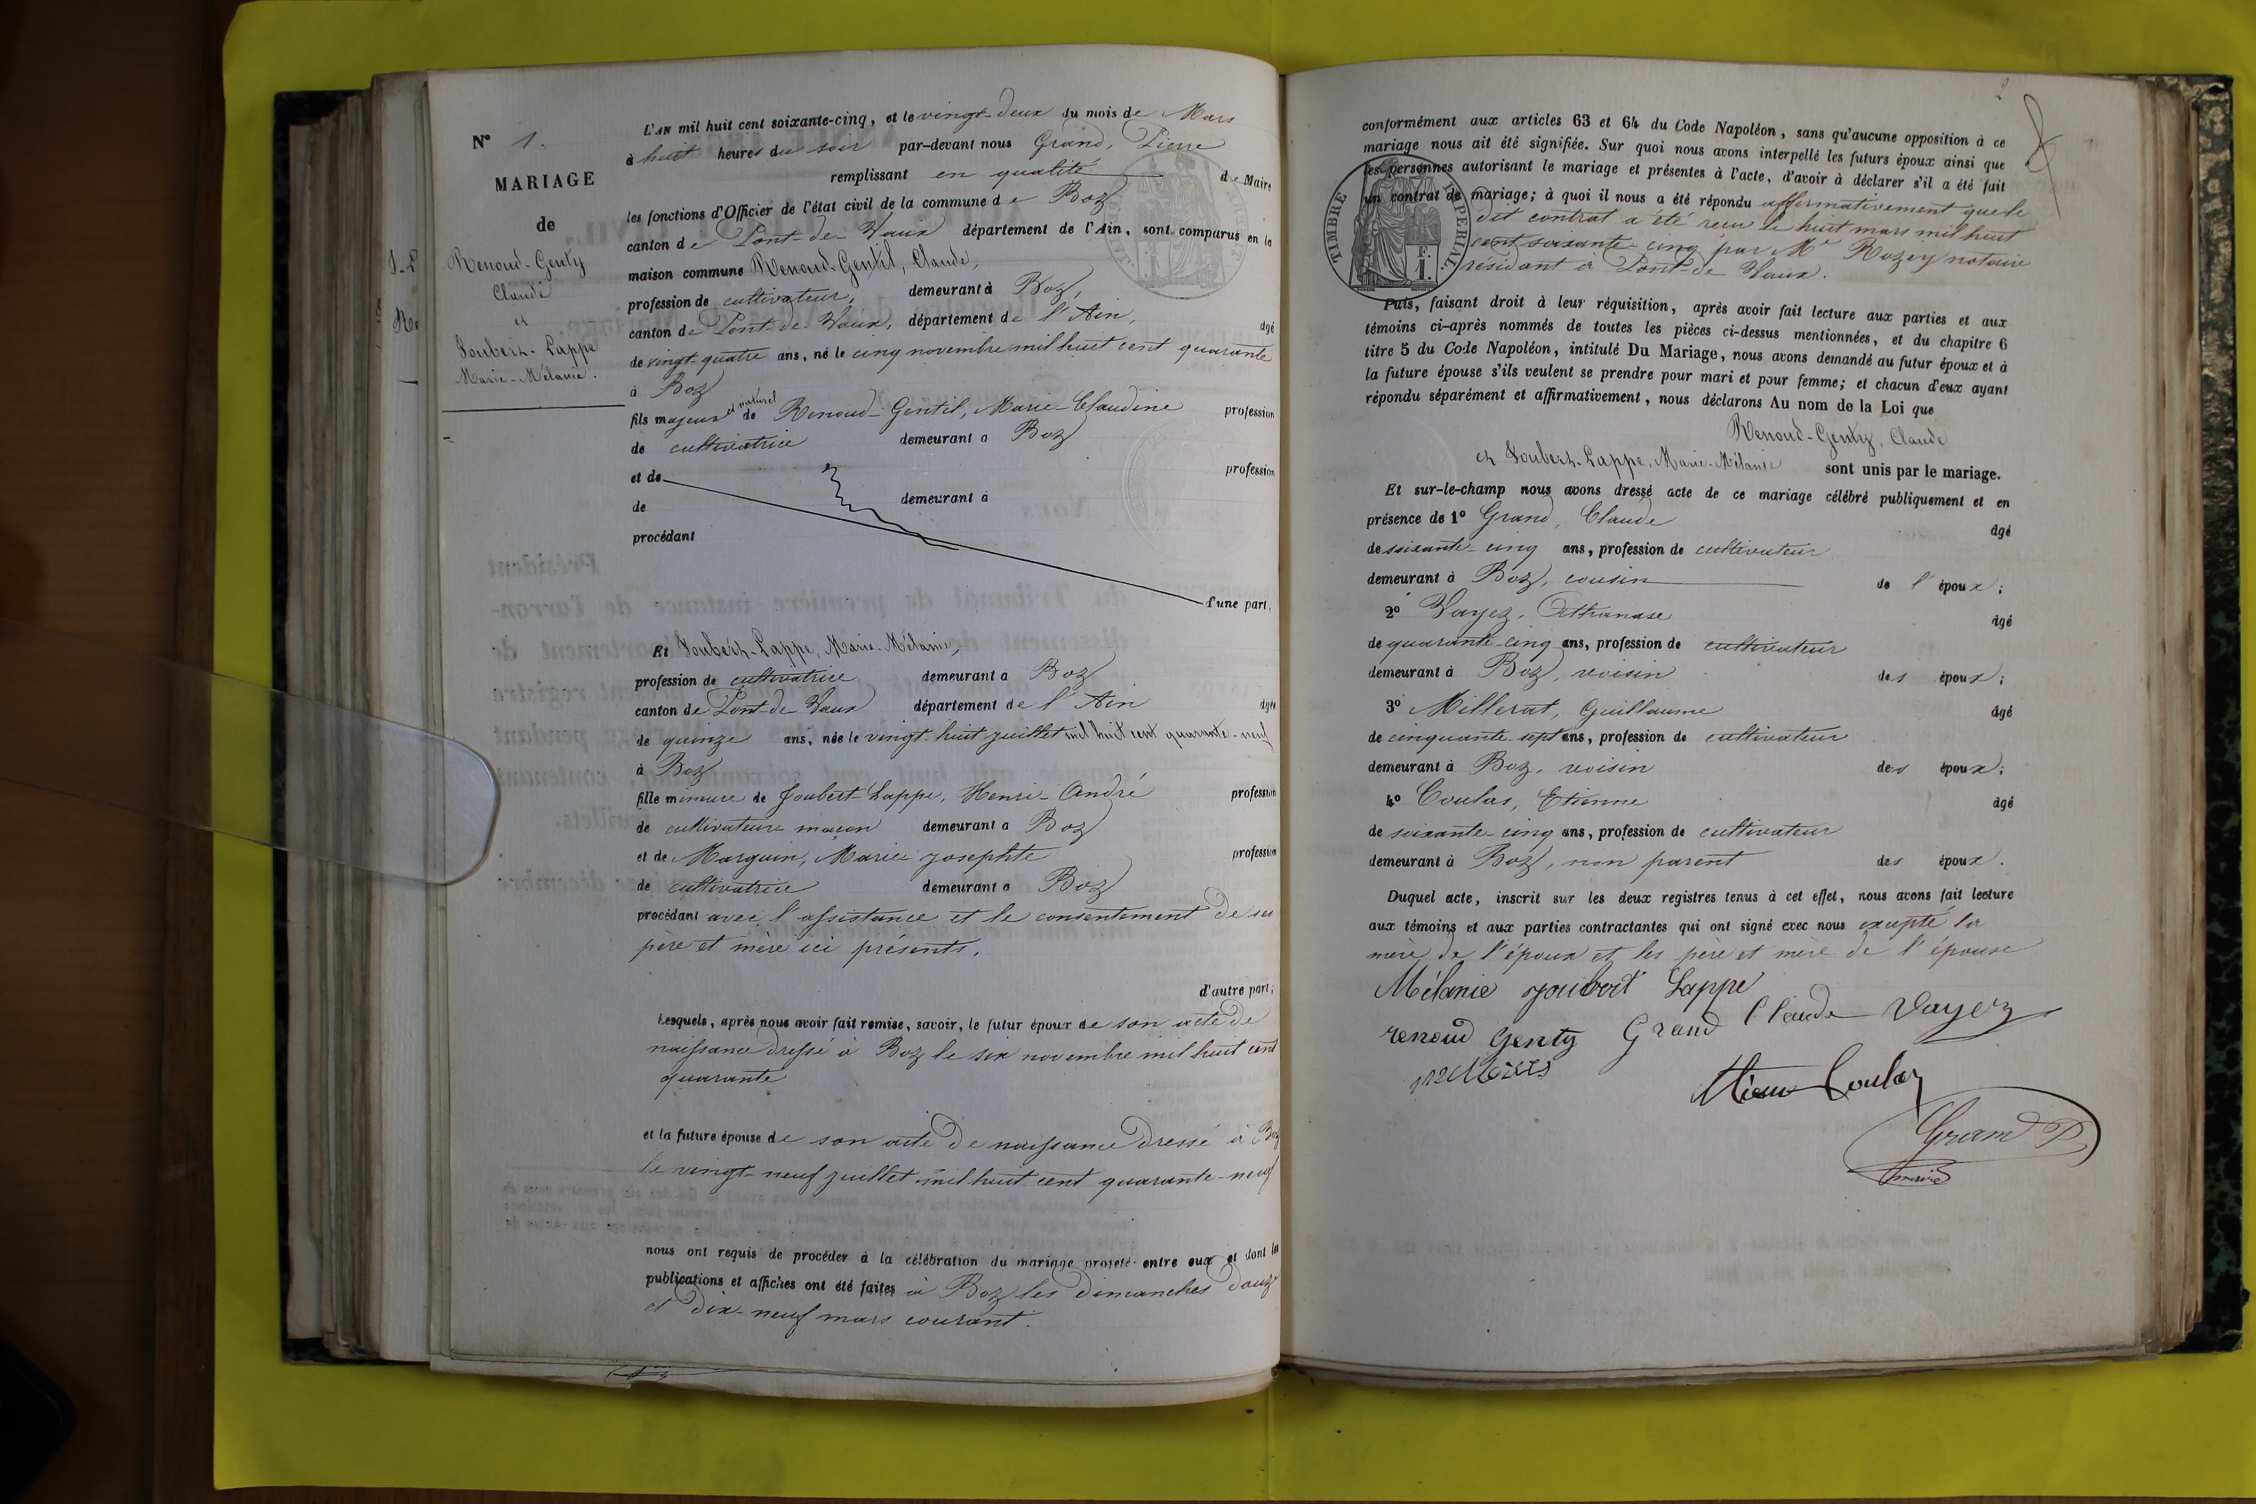 N° 1.
MARIAGE
de
Renoud-Genty
Claude
et
Joubert-Lappe
Marie-Mélanie.
L'AN mil huit cent soixante-cinq, et le vingt-deux du mois de Mars
à huit heures du soir par-devant nous Grand, Pierre
remplissant en qualité de Maire
les fonctions d'Officier de l'état civil de la commune de Boz
canton de Pont-de-Vaux département de l'Ain, sont comparus en la
maison commune Renoud-Gentil, Claude,
profession de cultivateur, demeurant à Boz,
canton de Pont-de-Vaux, département de l'Ain, âgé
de vingt quatre ans, né le cinq novembre mil huit cent quarante
à Boz
fils majeur et naturel de Renoud-Gentil, Marie-Claudine profession
de cultivatrice demeurant a Boz
et de profession
de demeurant à
procédant
d'une part.
Et Joubert-Lappe, Marie-Mélanie,
profession de cultivatrice demeurant a Boz
canton de Pont-de-Vaux département de l'Ain âgée
de quinze ans, née le vingt-huit juillet mil huit cent quarante-neuf
à Boz
fille mineure de Joubert-Lappe, Henri-André profession
de cultivateur maçon demeurant a Boz
et de Marguin, Marie josephte profession
de cultivatrice demeurant a Boz
procédant avec l'assistance et le consentement de ses
père et mère ici présents.
d'autre part;
Lesquels, après nous avoir fait remise, savoir, le futur époux de son acte de
naissance dressé à Boz le six novembre mil huit cent
quarante
et la future épouse de son acte de naissance dressé à Boz
le vingt-neuf juillet mil huit cent quarante-neuf
nous ont requis de procéder à la célébration du mariage projeté entre eux et dont les
publications et affiches ont été faites à Boz les dimanches douze
et dix-neuf mars courant.
conformément aux articles 63 et 64 du Code Napoléon, sans qu'aucune opposition à ce
mariage nous ait été signifiée. Sur quoi nous avons interpellé les futurs époux ainsi que
les personnes autorisant le mariage et présentes à l'acte, d'avoir à déclarer s'il a été fait
un contrat de mariage; à quoi il nous a été répondu affirmativement que le
dit contrat a été reçu le huit mars mil huit
cent soixante-cinq par Me Rozey notaire
résidant à Pont-de-Vaux.
TIMBRE IMPERIAL
F.
1.
Puis, faisant droit à leur réquisition, après avoir fait lecture aux parties et aux
témoins ci-après nommés de toutes les pièces ci-dessus mentionnées, et du chapitre 6
titre 5 du Code Napoléon, intitulé Du Mariage, nous avons demandé au futur époux et à
la future épouse s'ils veulent se prendre pour mari et pour femme; et chacun d'eux ayant
répondu séparément et affirmativement, nous déclarons Au nom de la Loi que
Renoud-Genty, Claude
et Joubert-Lappe, Marie-Mélanie sont unis par le mariage.
Et sur-le-champ nous avons dressé acte de ce mariage célébré publiquement et en
présence de 1° Grand, Claude âgé
de soixante-cinq ans, profession de cultivateur
demeurant à Boz, cousin de l'époux;
2° Vayez, Athanase âgé
de quarante-cinq ans, profession de cultivateur
demeurant à Boz, voisin des époux;
3° Millerat, Guillaume âgé
de cinquante-sept ans, profession de cultivateur
demeurant à Boz, voisin des époux;
4° Coulas, Etienne âgé
de soixante-cinq ans, profession de cultivateur
demeurant à Boz, non parent des époux.
Duquel acte, inscrit sur les deux registres tenus à cet effet, nous avons fait lecture
aux témoins et aux parties contractantes qui ont signé avec nous excepté la
mère de l'époux et les père et mère de l'épouse
Mélanie joubert Lappe
renoud Genty Grand Claude Vayez
Coulas
Grand P.
maire